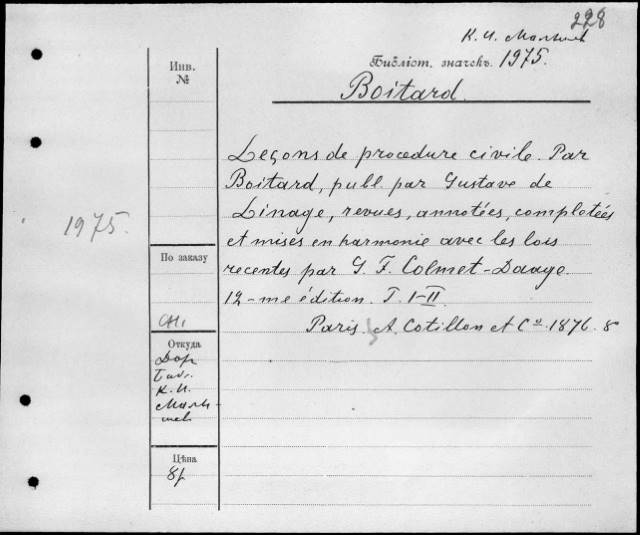 228
К. И. Малышев
Библіот. значекъ. 1975.
Boitard.
Инв.
№
Leçons de procedure civile. Par
Boitard, publ. par Gustave de
Linage, revues, annotées, completées
1975.
et mises en harmonie avec les lois
По заказу
recentes par G. F. Colmet-Daage.
12-me édition. T. I-II.
Paris. A. Cotillon et Cº. 1876. 8º
Откуда
Дар
К. И.
Малы-
шев
Цѣна
8р